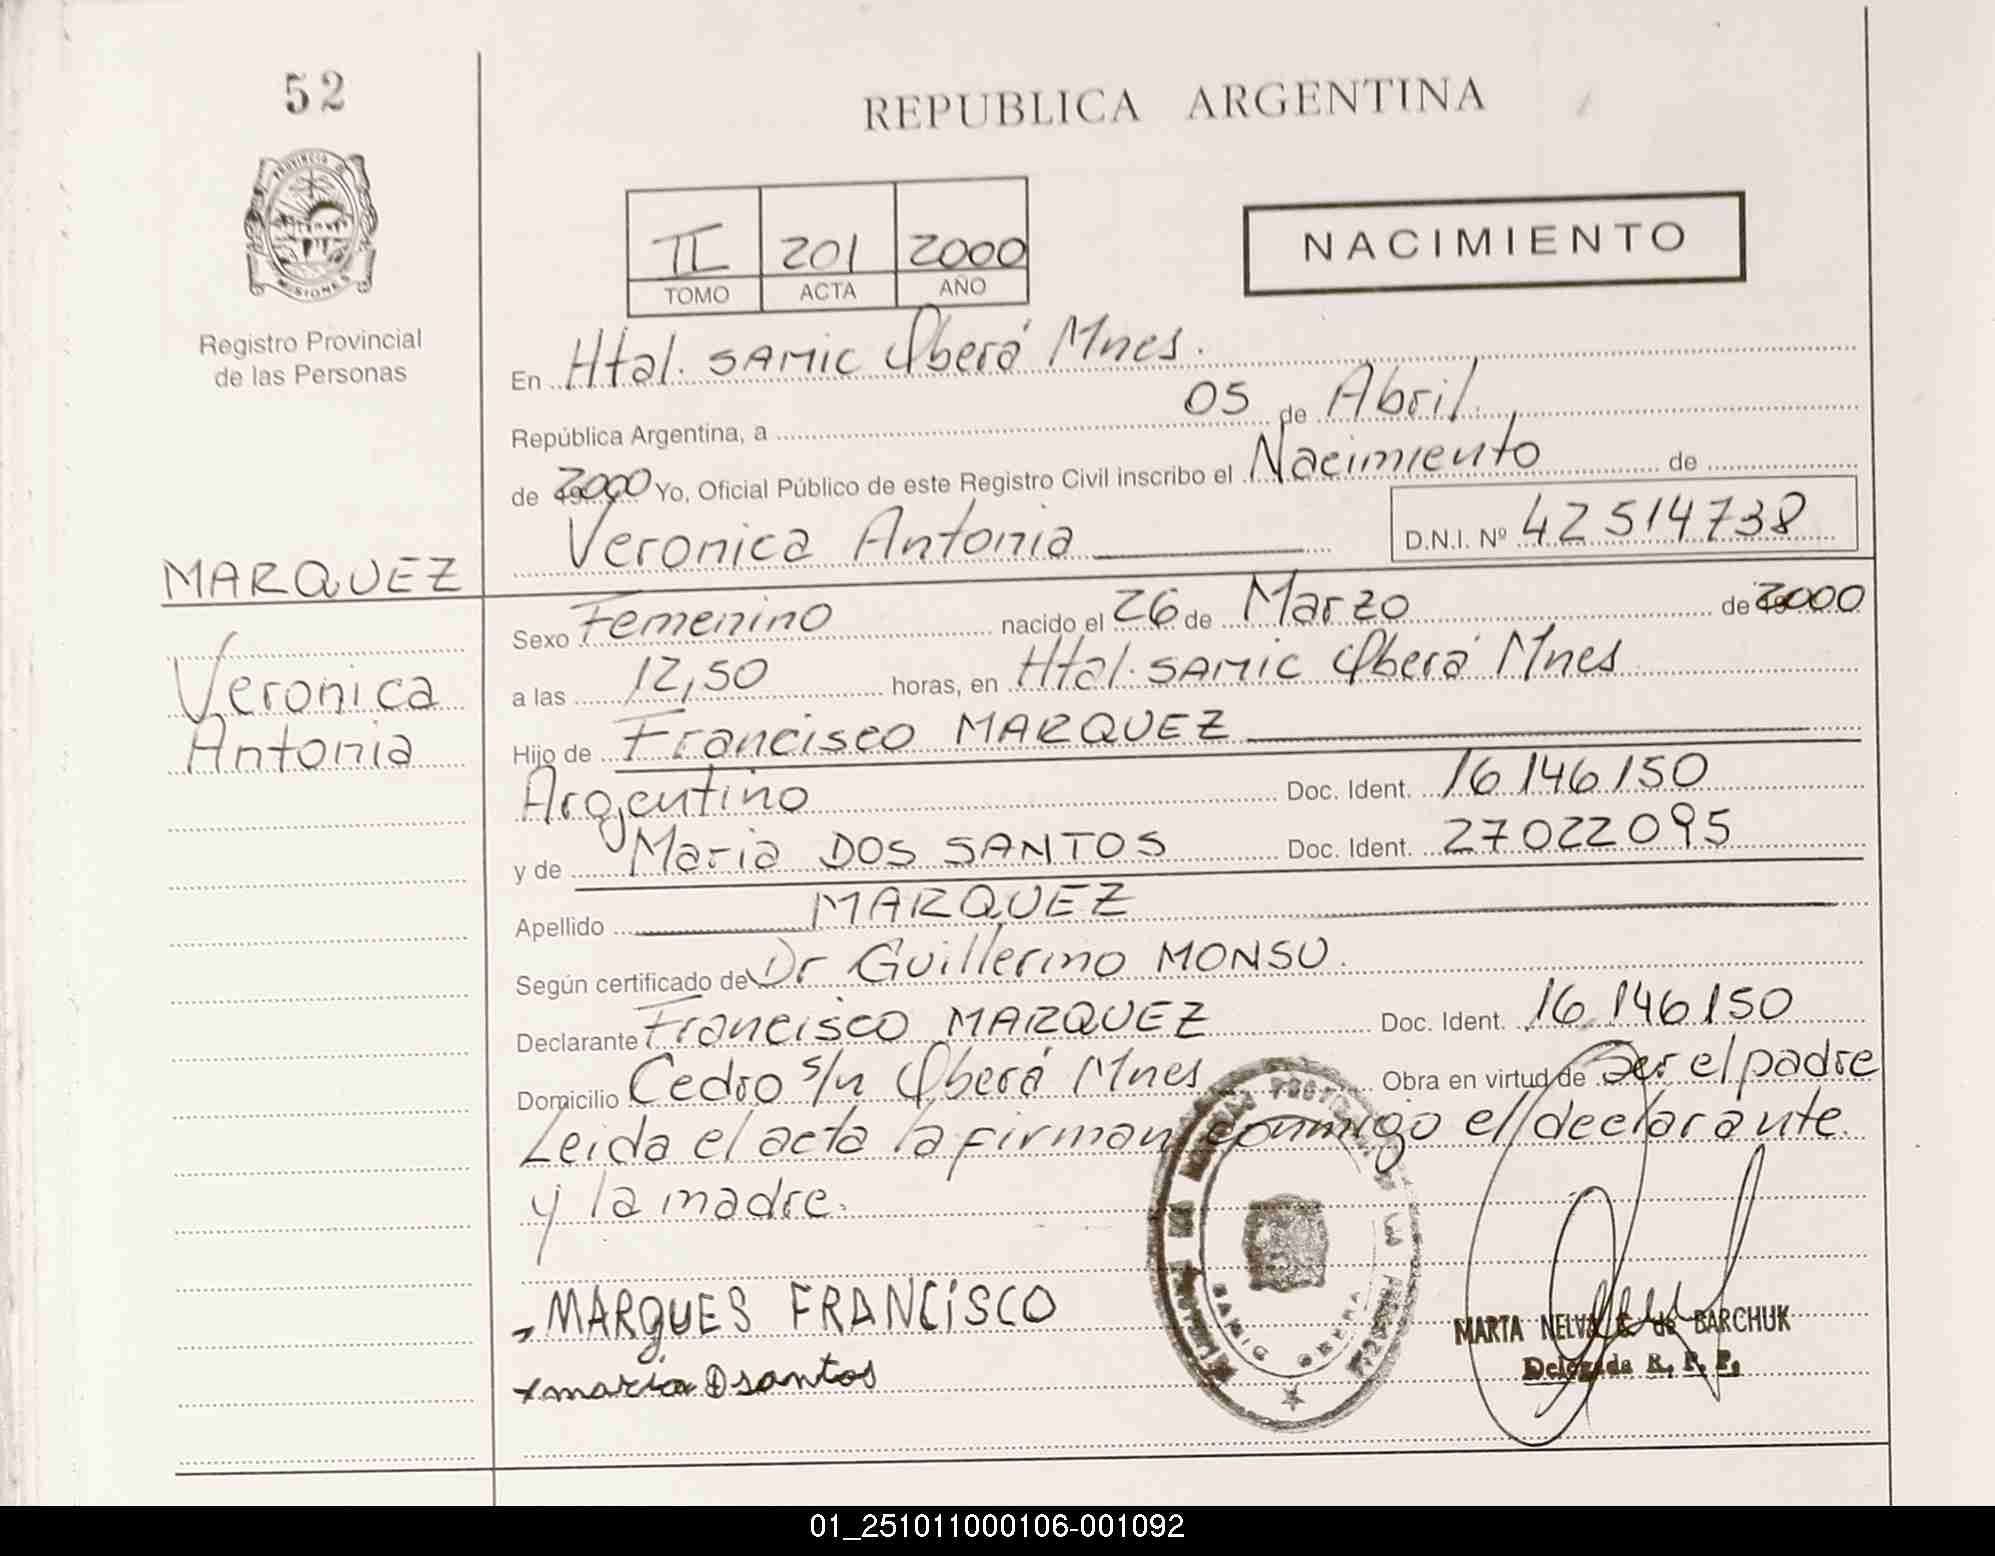 52
REPUBLICA ARGENTINA
PROVINCIA
MISIONES
Registro Provincial
de las Personas
II 201 2000
TOMO ACTA AÑO
NACIMIENTO
En Htal. SAMIC Oberá Mnes.
República Argentina, a 05 de Abril
de 2000 Yo, Oficial Público de este Registro Civil inscribo el Nacimiento de
Veronica Antonia D.N.I. Nº 42514738
MARQUEZ
Veronica
Antonia
Sexo Femenino nacido el 26 de Marzo de 2000
a las 12,50 horas, en Htal. SAMIC Oberá Mnes
Hijo de Francisco MARQUEZ
Argentino Doc. Ident. 16146150
y de Maria DOS SANTOS Doc. Ident. 27022095
Apellido MARQUEZ
Según certificado de Dr Guillermo MONSU.
Declarante Francisco MARQUEZ Doc. Ident. 16146150
Domicilio Cedro s/n Oberá Mnes Obra en virtud de Ser el padre
Leida el acta la firman conmigo el declarante
y la madre.
MARQUES FRANCISCO
maria D santos
SAMIC OBERA
MARTA NELVA de BARCHUK
Delegada R. P. P.
01_251011000106-001092